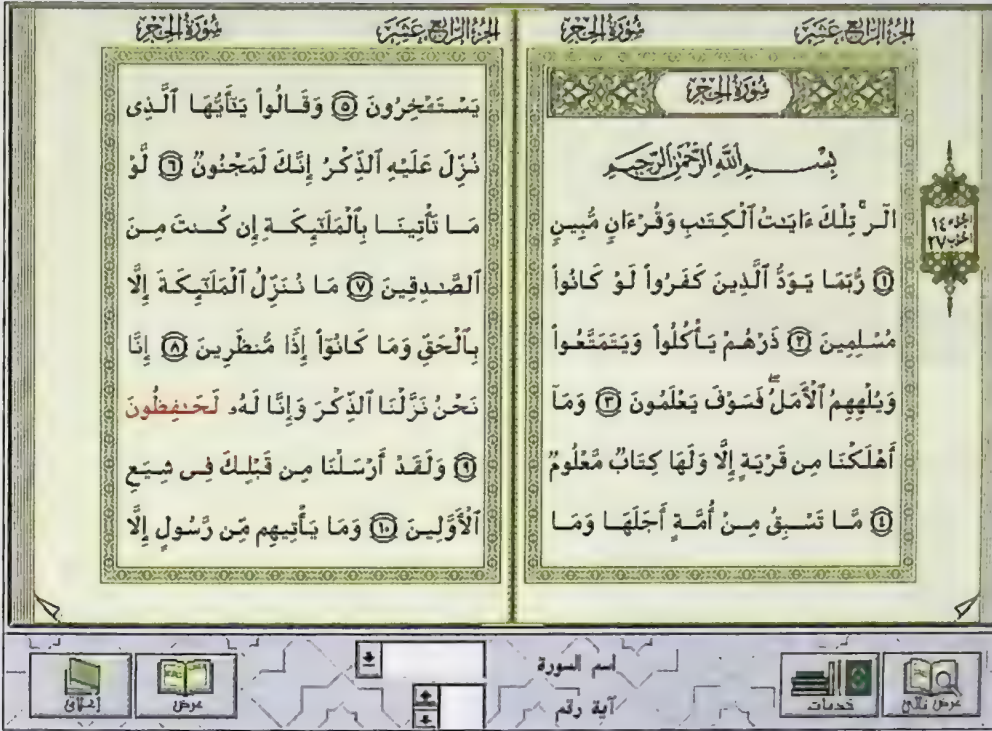 الجزء الرابع عشر
سورة الحجر
سورة الحجر
بِسْمِ اللَّهِ الرَّحْمَٰنِ الرَّحِيمِ
الٓرۚ تِلْكَ ءَايَٰتُ ٱلْكِتَٰبِ وَقُرْءَانٍ مُّبِينٍ
١ رُّبَمَا يَوَدُّ ٱلَّذِينَ كَفَرُوا۟ لَوْ كَانُوا۟
مُسْلِمِينَ ٢ ذَرْهُمْ يَأْكُلُوا۟ وَيَتَمَتَّعُوا۟
وَيُلْهِهِمُ ٱلْأَمَلُۖ فَسَوْفَ يَعْلَمُونَ ٣ وَمَآ
أَهْلَكْنَا مِن قَرْيَةٍ إِلَّا وَلَهَا كِتَابٌ مَّعْلُومٌ
٤ مَّا تَسْبِقُ مِنْ أُمَّةٍ أَجَلَهَا وَمَا
الجزء ١٤
الحزب ٢٧
الجزء الرابع عشر
سورة الحجر
يَسْتَـْٔخِرُونَ ٥ وَقَالُوا۟ يَٰٓأَيُّهَا ٱلَّذِى
نُزِّلَ عَلَيْهِ ٱلذِّكْرُ إِنَّكَ لَمَجْنُونٌ ٦ لَّوْ
مَا تَأْتِينَا بِٱلْمَلَٰٓئِكَةِ إِن كُنتَ مِنَ
ٱلصَّٰدِقِينَ ٧ مَا نُنَزِّلُ ٱلْمَلَٰٓئِكَةَ إِلَّا
بِٱلْحَقِّ وَمَا كَانُوٓا۟ إِذًا مُّنظَرِينَ ٨ إِنَّا
نَحْنُ نَزَّلْنَا ٱلذِّكْرَ وَإِنَّا لَهُۥ لَحَٰفِظُونَ
٩ وَلَقَدْ أَرْسَلْنَا مِن قَبْلِكَ فِى شِيَعِ
ٱلْأَوَّلِينَ ١٠ وَمَا يَأْتِيهِم مِّن رَّسُولٍ إِلَّا
اسم السورة
آية رقم
عرض نصي
خدمات
عرض
إغلاق